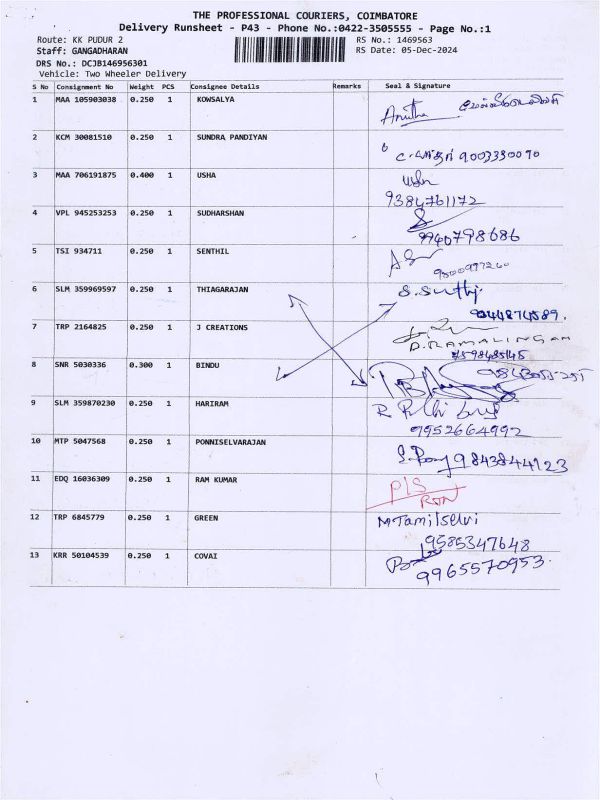 THE PROFESSIONAL COURIERS, COIMBATORE
Delivery Runsheet - P43 - Phone No.:0422-3505555 - Page No.:1
Route: KK PUDUR 2 RS No.: 1469563
Staff: GANGADHARAN RS Date: 05-Dec-2024
DRS No.: DCJB146956301
Vehicle: Two Wheeler Delivery
S No Consignment No Weight PCS Consignee Details Remarks Seal & Signature
1 MAA 105903038 0.250 1 KOWSALYA Anitha
2 KCM 30081510 0.250 1 SUNDRA PANDIYAN
3 MAA 706191875 0.400 1 USHA Usha
9384761172
4 VPL 945253253 0.250 1 SUDHARSHAN
9940798686
5 TSI 934711 0.250 1 SENTHIL
6 SLM 359969597 0.250 1 THIAGARAJAN
7 TRP 2164825 0.250 1 J CREATIONS
D.RAMALINGAM
8 SNR 5030336 0.300 1 BINDU
9 SLM 359870230 0.250 1 HARIRAM
9952664992
10 MTP 5047568 0.250 1 PONNISELVARAJAN
9843844123
11 EDQ 16036309 0.250 1 RAM KUMAR P/S
RTN
12 TRP 6845779 0.250 1 GREEN M Tamilselvi
9585347648
13 KRR 50104539 0.250 1 COVAI
9965570953